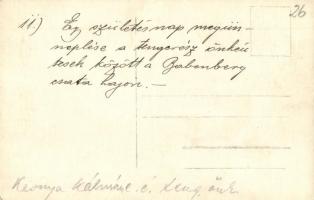 26
11) Egy születésnap megün-
neplése a tengerész önkén
tesek között a Babenberg
csata hajon. —
Kálmáné